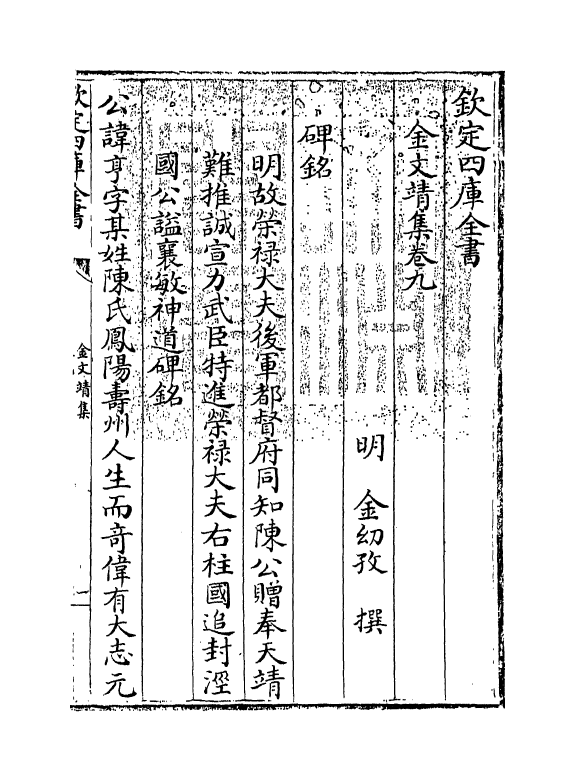 欽定四庫全書
金文靖集卷九
明 金幼孜 撰
碑銘
明故榮禄大夫後軍都督府同知陳公贈奉天靖
難推誠宣力武臣特進榮禄大夫右柱國追封涇
國公諡襄敏神道碑銘
公諱亨字某姓陳氏鳳陽壽州人生而竒偉有大志元
欽定四庫全書
金文靖集
一